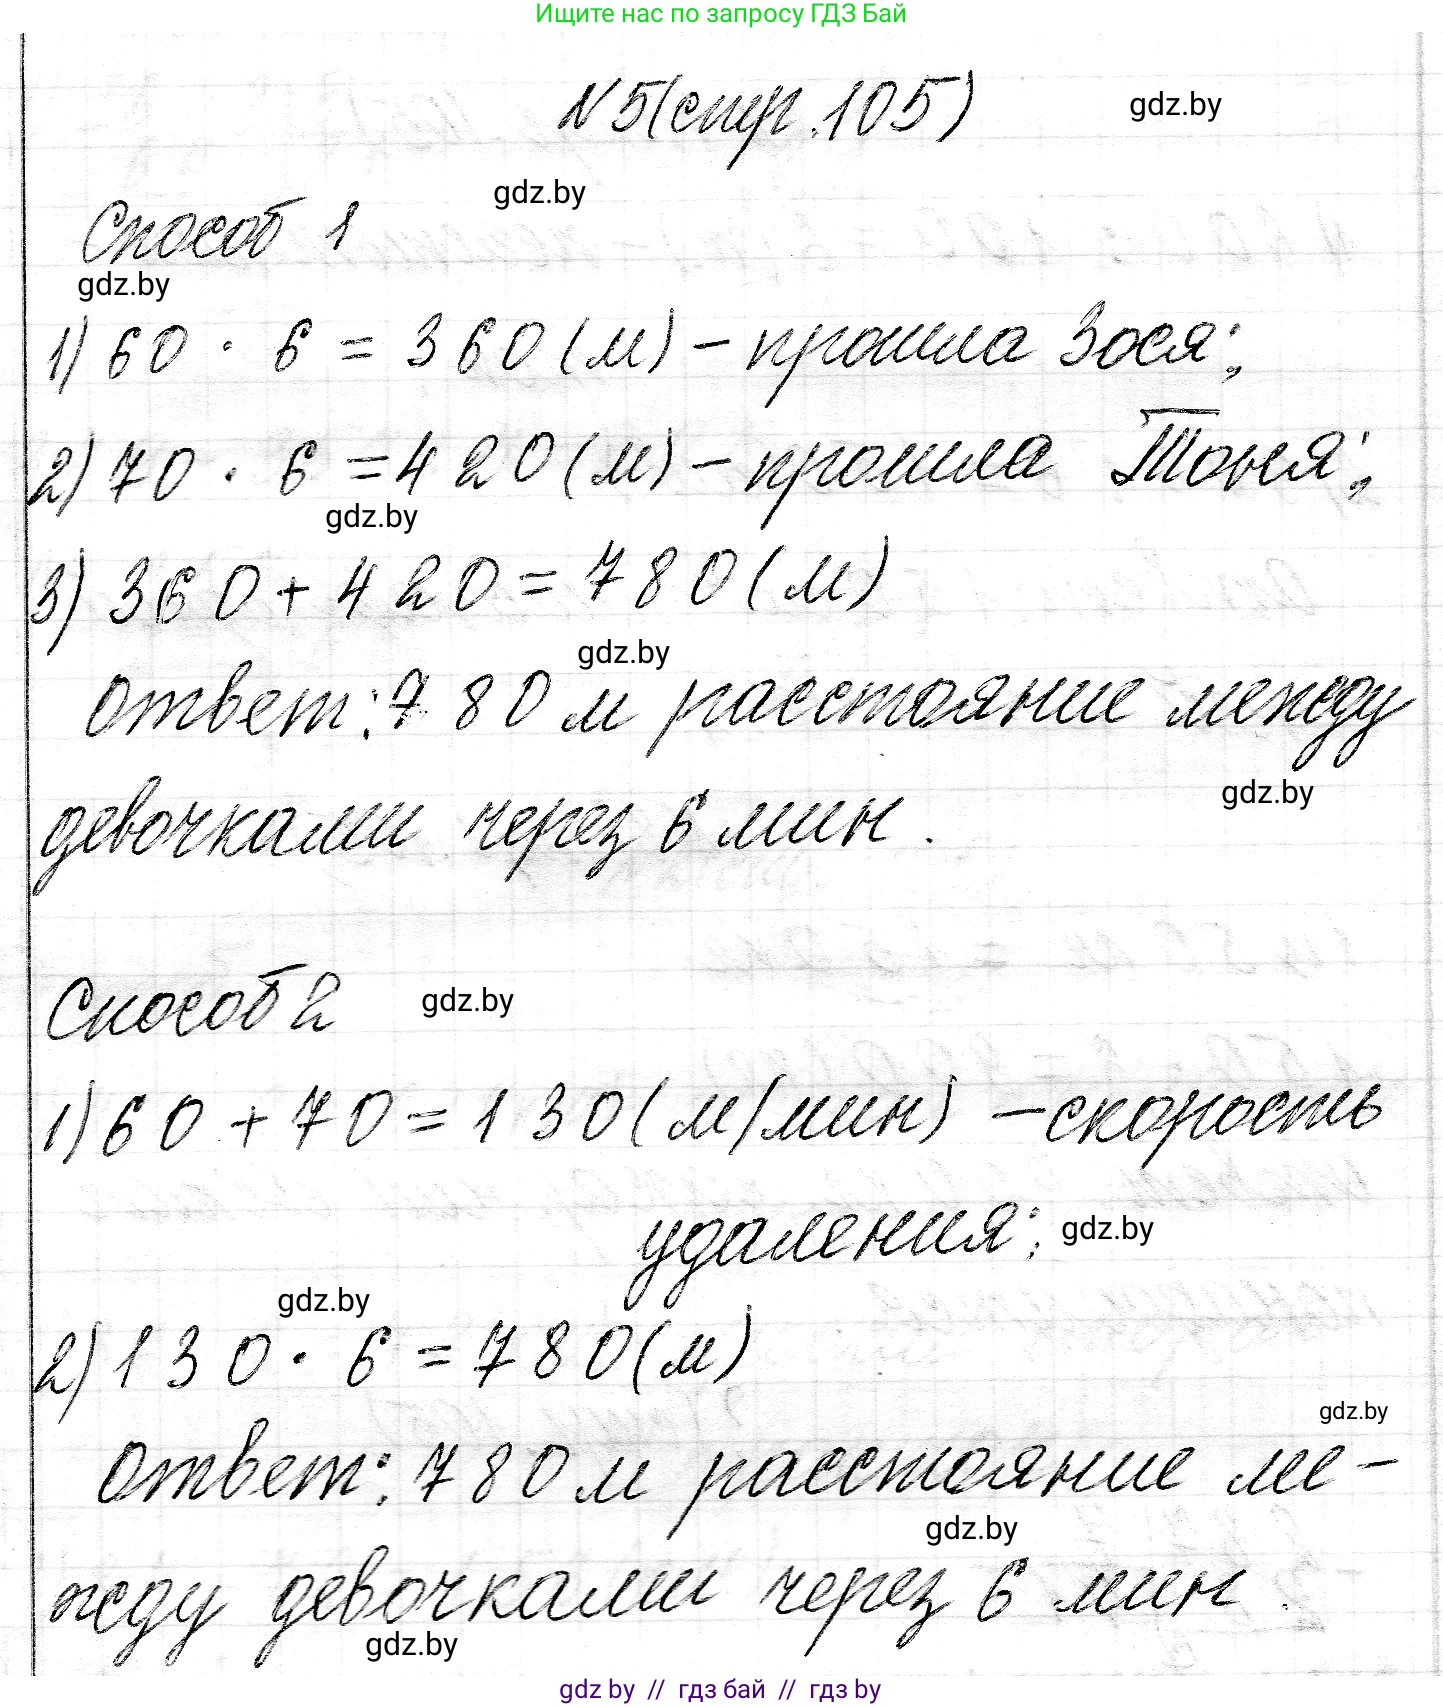 Ищите нас по запросу ГДЗ Бай
№5(стр.105)
gdz.by
gdz.by
Способ 1
gdz.by
1) 60 · 6 = 360 (м) - прошла Зося;
2) 70 · 6 = 420 (м) - прошла Тоня;
gdz.by
3) 360 + 420 = 780 (м)
gdz.by
ответ: 780 м расстояние между
gdz.by
девочками через 6 мин.
Способ 2
gdz.by
1) 60 + 70 = 130 (м/мин) - скорость
удаления;
gdz.by
gdz.by
2) 130 · 6 = 780 (м)
gdz.by
ответ: 780 м расстояние ме-
gdz.by
жду девочками через 6 мин.
gdz.by
gdz by // гдз бай // гдз by